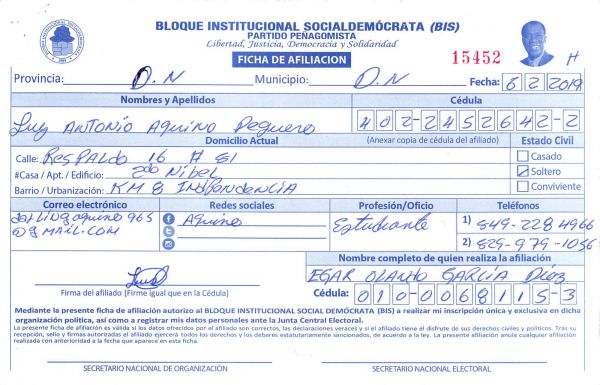 BLOQUE INSTITUCIONAL SOCIALDEMÓCRATA (BIS)
PARTIDO PEÑAGOMISTA
Libertad, Justicia, Democracia y Solidaridad
FICHA DE AFILIACION
15452
H
Provincia: D.N Municipio: D.N Fecha: 8 2 2019
Nombres y Apellidos Cédula
Luz ANTONIO Aquino Peguero 402-2452642-2
Domicilio Actual (Anexar copia de cédula del afiliado) Estado Civil
Calle: Respaldo 16 # 81 Casado
#Casa / Apt. / Edificio: 2do Nibel Soltero
Barrio / Urbanización: KM 8 Indipendencia Conviviente
Correo electrónico Redes sociales Profesión/Oficio Teléfonos
aquino965 Aquino Estudiante 1) 849-228 4966
@gmail.com 2) 829-979-1056
Nombre completo de quien realiza la afiliación
EGAR Olando GARCIA Diaz
Firma del afiliado (Firme igual que en la Cédula) Cédula: 010-0068115-3
Mediante la presente ficha de afiliación autorizo al BLOQUE INSTITUCIONAL SOCIAL DEMÓCRATA (BIS) a realizar mi inscripción única y exclusiva en dicha
organización política, así como a registrar mis datos personales ante la Junta Central Electoral.
La presente ficha de afiliación es válida si los datos ofrecidos por el afiliado son correctos, las declaraciones veraces y si el afiliado tiene el disfrute de sus derechos civiles y políticos. Tras su
recepción, sello y firmas autorizadas el afiliado ejercerá todos los derechos y los deberes estatutariamente sancionados, de acuerdo a la ley. La presente afiliación anula cualquier afiliación
realizada con anterioridad a la fecha que aparece en esta ficha.
SECRETARIO NACIONAL DE ORGANIZACIÓN SECRETARIO NACIONAL ELECTORAL